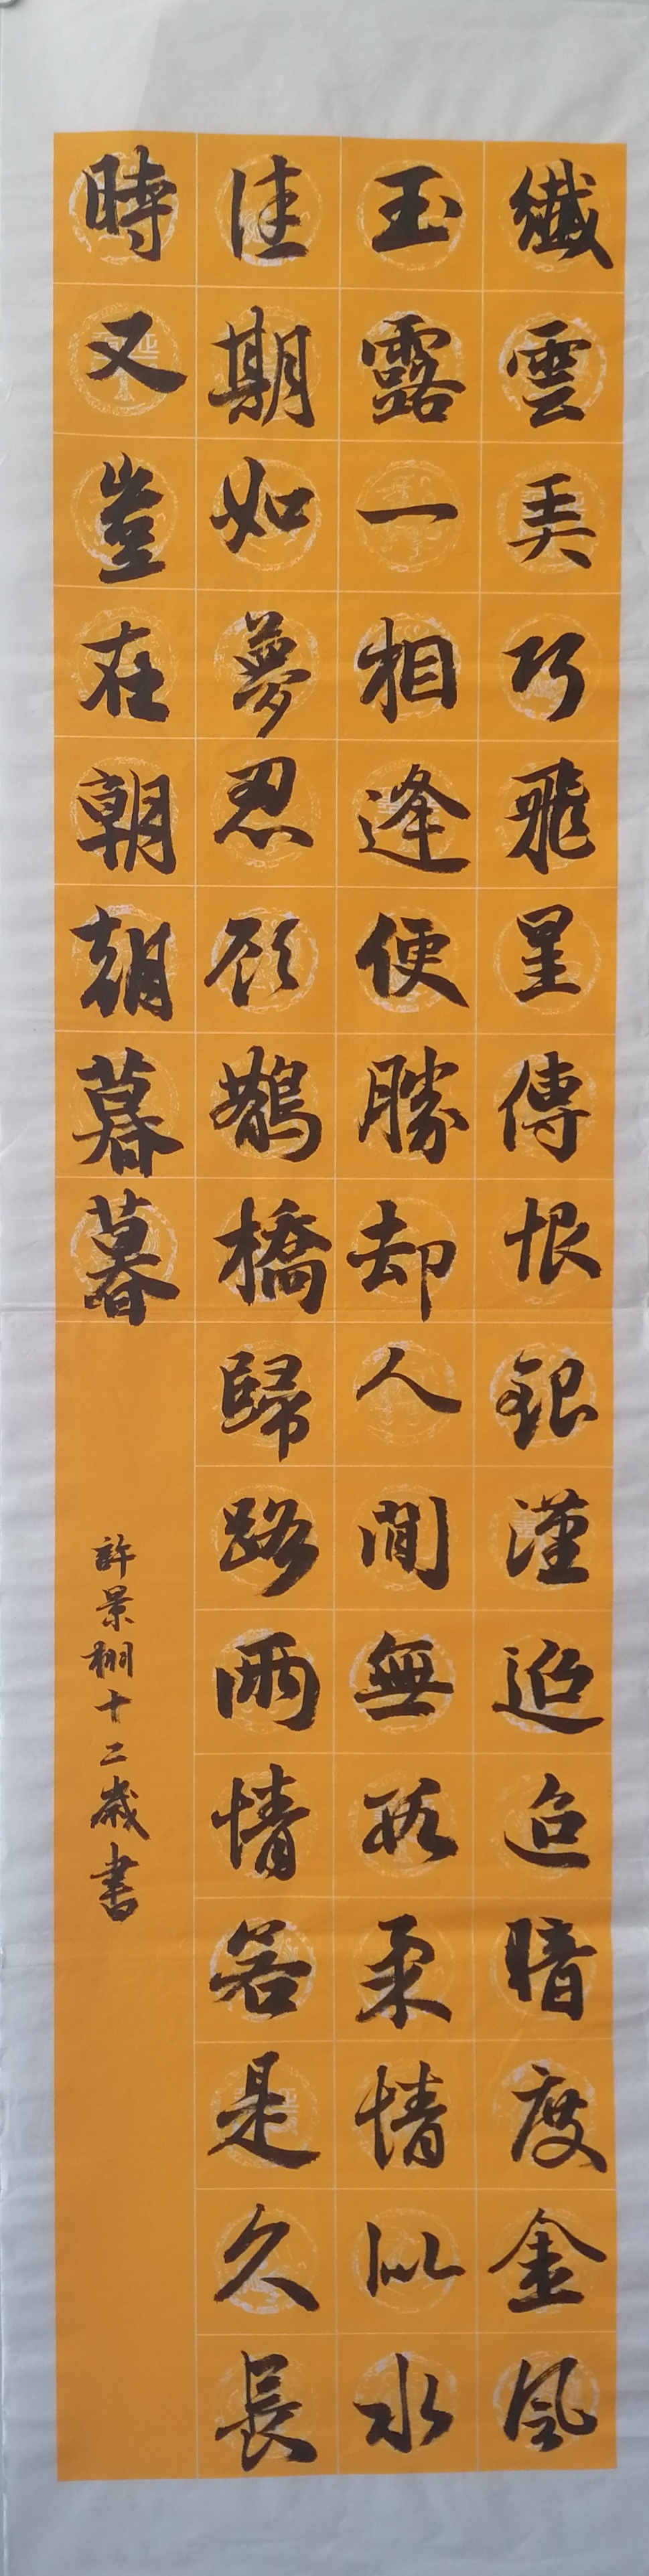 纖雲弄巧飛星傳恨銀漢迢迢暗度金風
玉露一相逢便勝却人間無數柔情似水
佳期如夢忍顧鵲橋歸路兩情若是久長
時又豈在朝朝暮暮
許景栩十二歲書